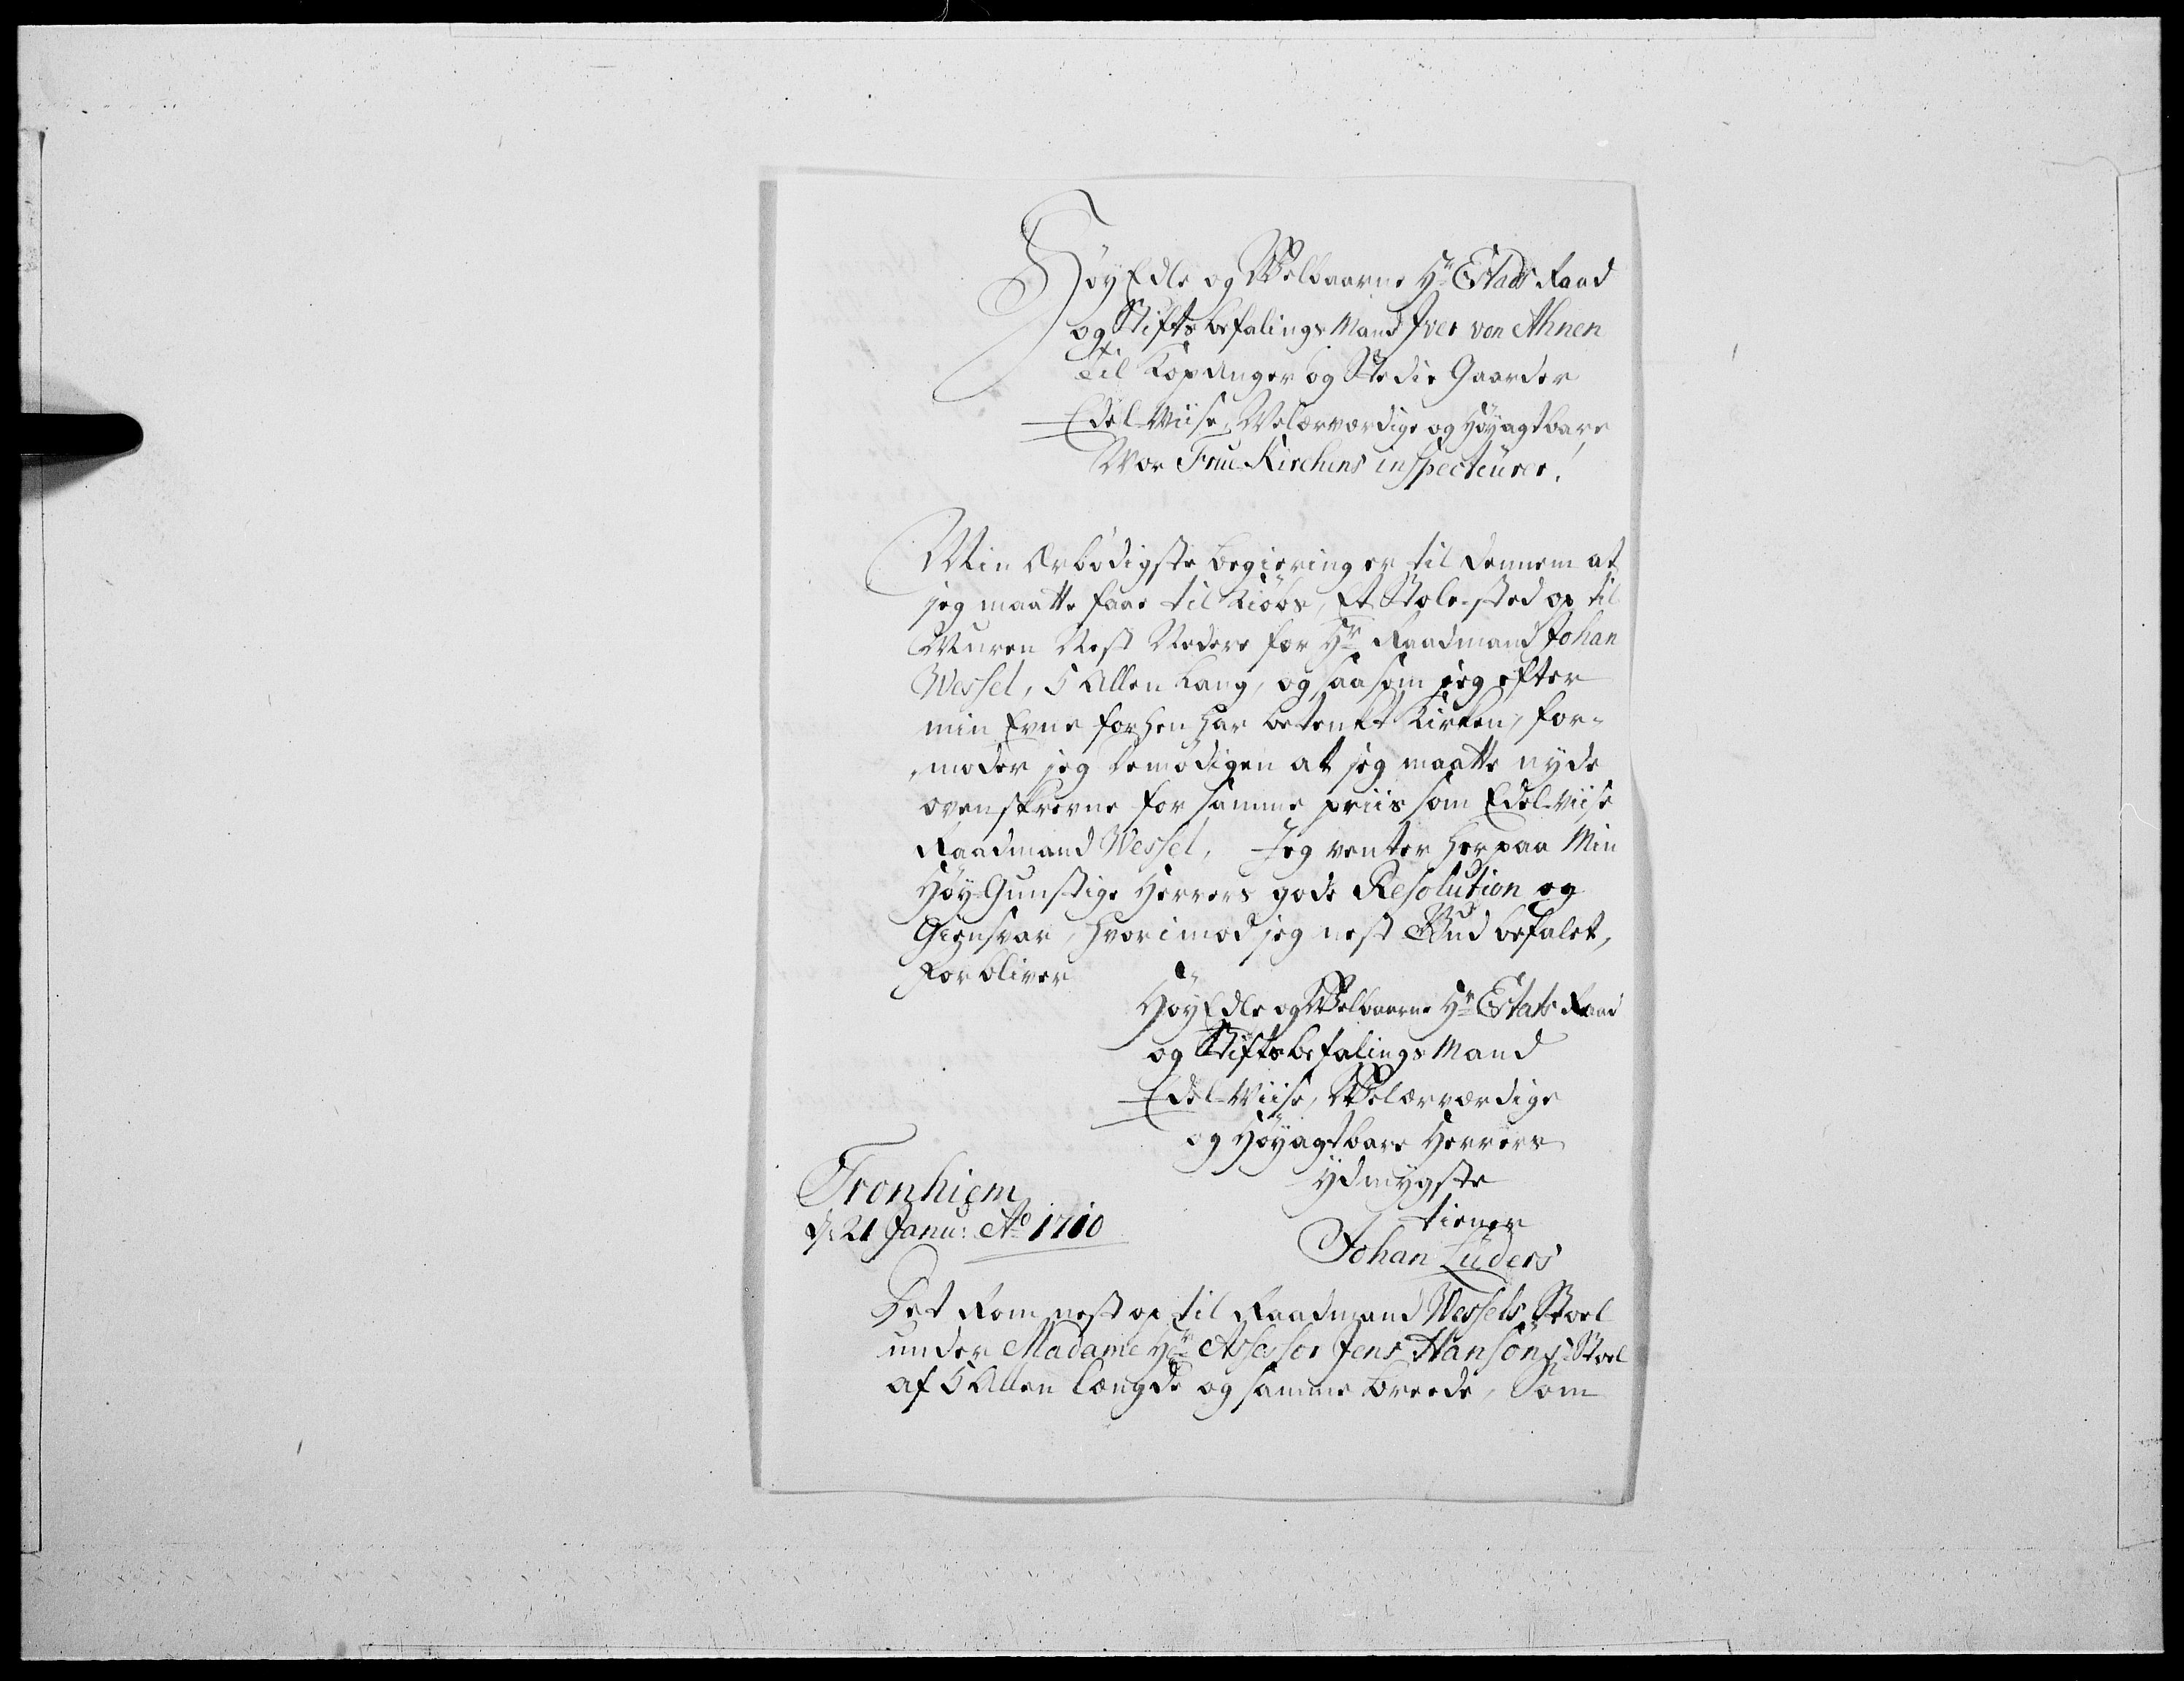 HøyEdle og Welbaarne Hr Estats Raad
og Stiftsbefalings Mand Iver von Ahnen
til Kopanger og Stedie Gaarder
Edel-Wiise, Welærværdige og Høyagtbare
Wor Frue Kirchens inspecteurer.
Min Ærbødigste begiering er til dennem at
jeg maatte faae til Kiøbs, Et Stolested op til
Muren Nest Neders for Hr Raadmand Johan
Wessel, 5 Allen Lang, og saasom jeg efter
min Evne forhen har betenkt Kirken, for-
moder jeg demødigen at jeg maatte nyde
ovenskrevne for samme priis som Edel-viise
Raadmand Wessel, Jeg venter herpaa Min
Høy-Gunstige Herrers gode Resolution og
Giensvar, hvorimod jeg nest Gud befalet,
Forbliver
HøyEdle og Welbaarne Hr Estats Raad
og Stiftsbefalings Mand
Edel-Wiise, Welærværdige
og Høyagtbare Herrers
ydmygste
tiener
Johan Lüders
Tronhiem
d: 21 Janu: Ao 1710
Det Rom nest op til Raadmand Wessels Stoel
under Madame Hr Assessor Jens Hansøns Stoel
af 5 Allen længde og samme breede, Som